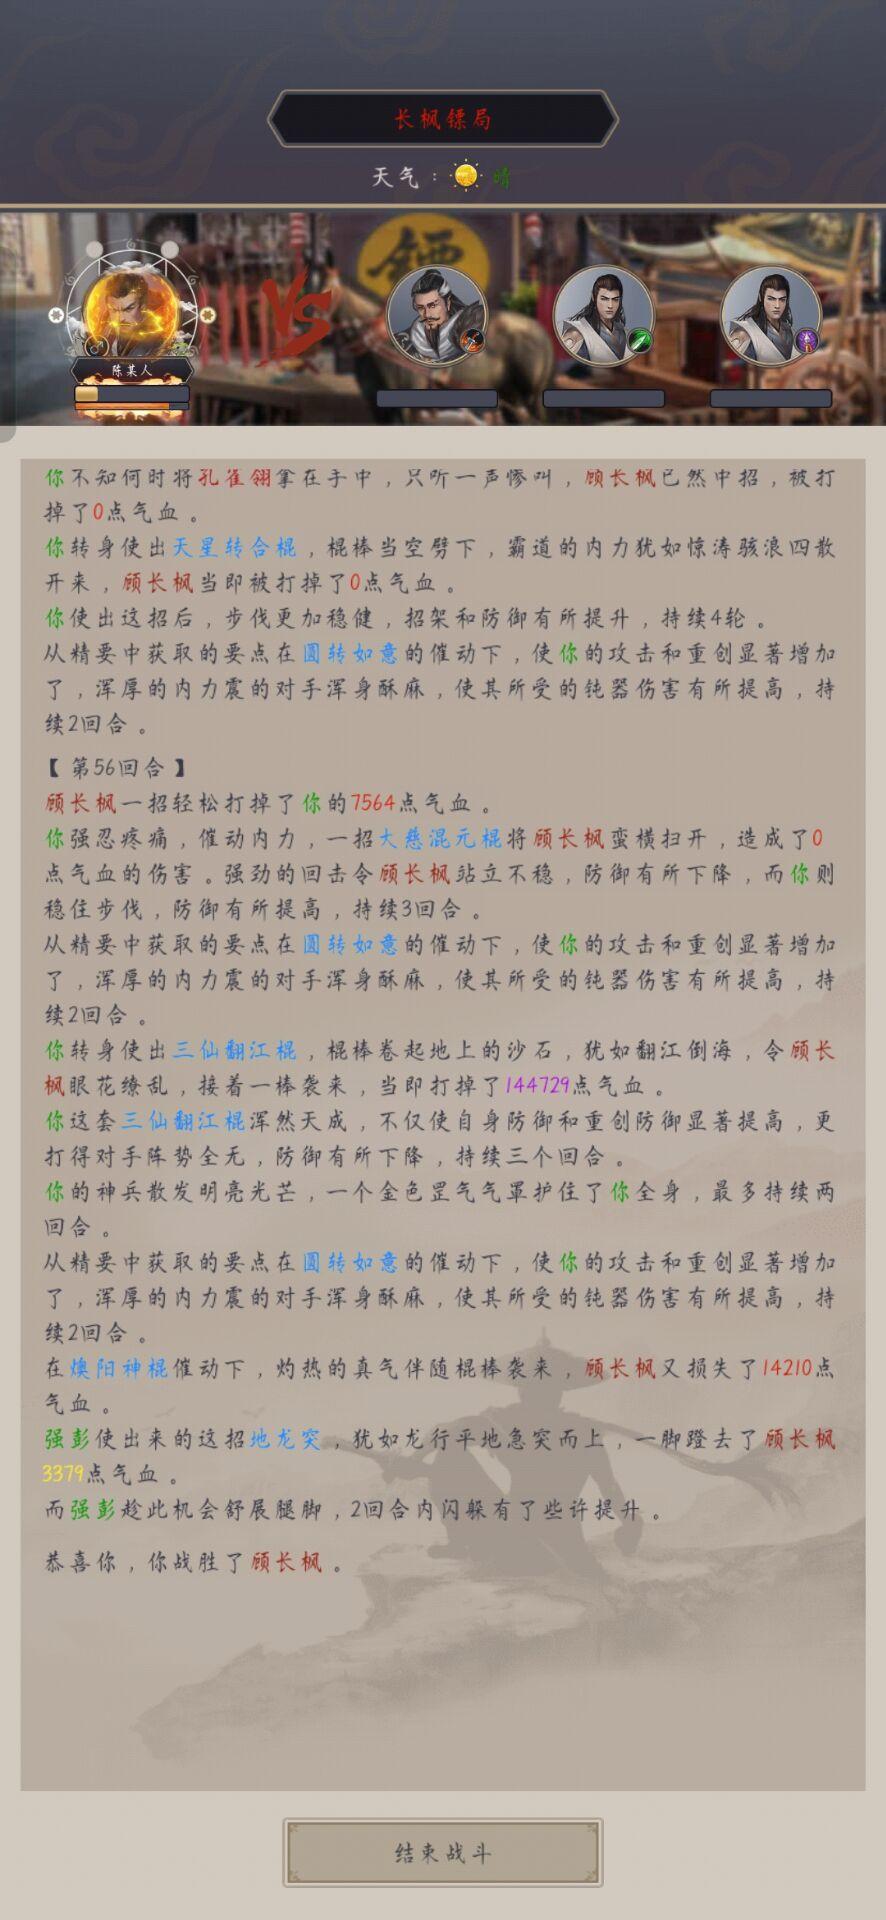 长枫镖局
天气：晴
镖
陈某人
VS
你不知何时将孔雀翎拿在手中，只听一声惨叫，顾长枫已然中招，被打
掉了0点气血。
你转身使出天星转合棍，棍棒当空劈下，霸道的内力犹如惊涛骇浪四散
开来，顾长枫当即被打掉了0点气血。
你使出这招后，步伐更加稳健，招架和防御有所提升，持续4轮。
从精要中获取的要点在圆转如意的催动下，使你的攻击和重创显著增加
了，浑厚的内力震的对手浑身酥麻，使其所受的钝器伤害有所提高，持
续2回合。
【第56回合】
顾长枫一招轻松打掉了你的7564点气血。
你强忍疼痛，催动内力，一招大慈混元棍将顾长枫蛮横扫开，造成了0
点气血的伤害。强劲的回击令顾长枫站立不稳，防御有所下降，而你则
稳住步伐，防御有所提高，持续3回合。
从精要中获取的要点在圆转如意的催动下，使你的攻击和重创显著增加
了，浑厚的内力震的对手浑身酥麻，使其所受的钝器伤害有所提高，持
续2回合。
你转身使出三仙翻江棍，棍棒卷起地上的沙石，犹如翻江倒海，令顾长
枫眼花缭乱，接着一棒袭来，当即打掉了144729点气血。
你这套三仙翻江棍浑然天成，不仅使自身防御和重创防御显著提高，更
打得对手阵势全无，防御有所下降，持续三个回合。
你的神兵散发明亮光芒，一个金色罡气气罩护住了你全身，最多持续两
回合。
从精要中获取的要点在圆转如意的催动下，使你的攻击和重创显著增加
了，浑厚的内力震的对手浑身酥麻，使其所受的钝器伤害有所提高，持
续2回合。
在燠阳神棍催动下，灼热的真气伴随棍棒袭来，顾长枫又损失了14210点
气血。
强彭使出来的这招地龙突，犹如龙行平地急突而上，一脚蹬去了顾长枫
3379点气血。
而强彭趁此机会舒展腿脚，2回合内闪躲有了些许提升。
恭喜你，你战胜了顾长枫。
结束战斗